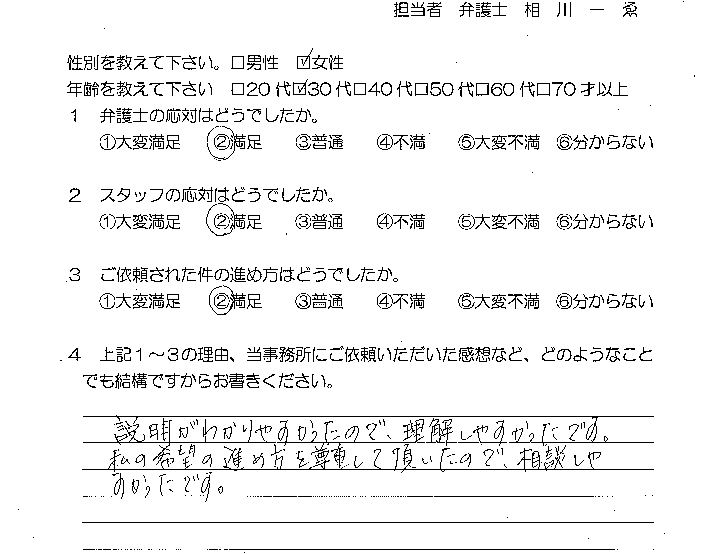 担当者 弁護士 相 川 一 ゑ
性別を教えて下さい。□男性 ☑女性
年齢を教えて下さい □20代☑30代□40代□50代□60代□70才以上
1 弁護士の応対はどうでしたか。
①大変満足 ②満足 ③普通 ④不満 ⑤大変不満 ⑥分からない
2 スタッフの応対はどうでしたか。
①大変満足 ②満足 ③普通 ④不満 ⑤大変不満 ⑥分からない
3 ご依頼された件の進め方はどうでしたか。
①大変満足 ②満足 ③普通 ④不満 ⑤大変不満 ⑥分からない
4 上記1~3の理由、当事務所にご依頼いただいた感想など、どのようなこと
でも結構ですからお書きください。
説明がわかりやすかったので、理解しやすかったです。
私の希望の進め方を尊重して頂いたので、相談しや
すかったです。